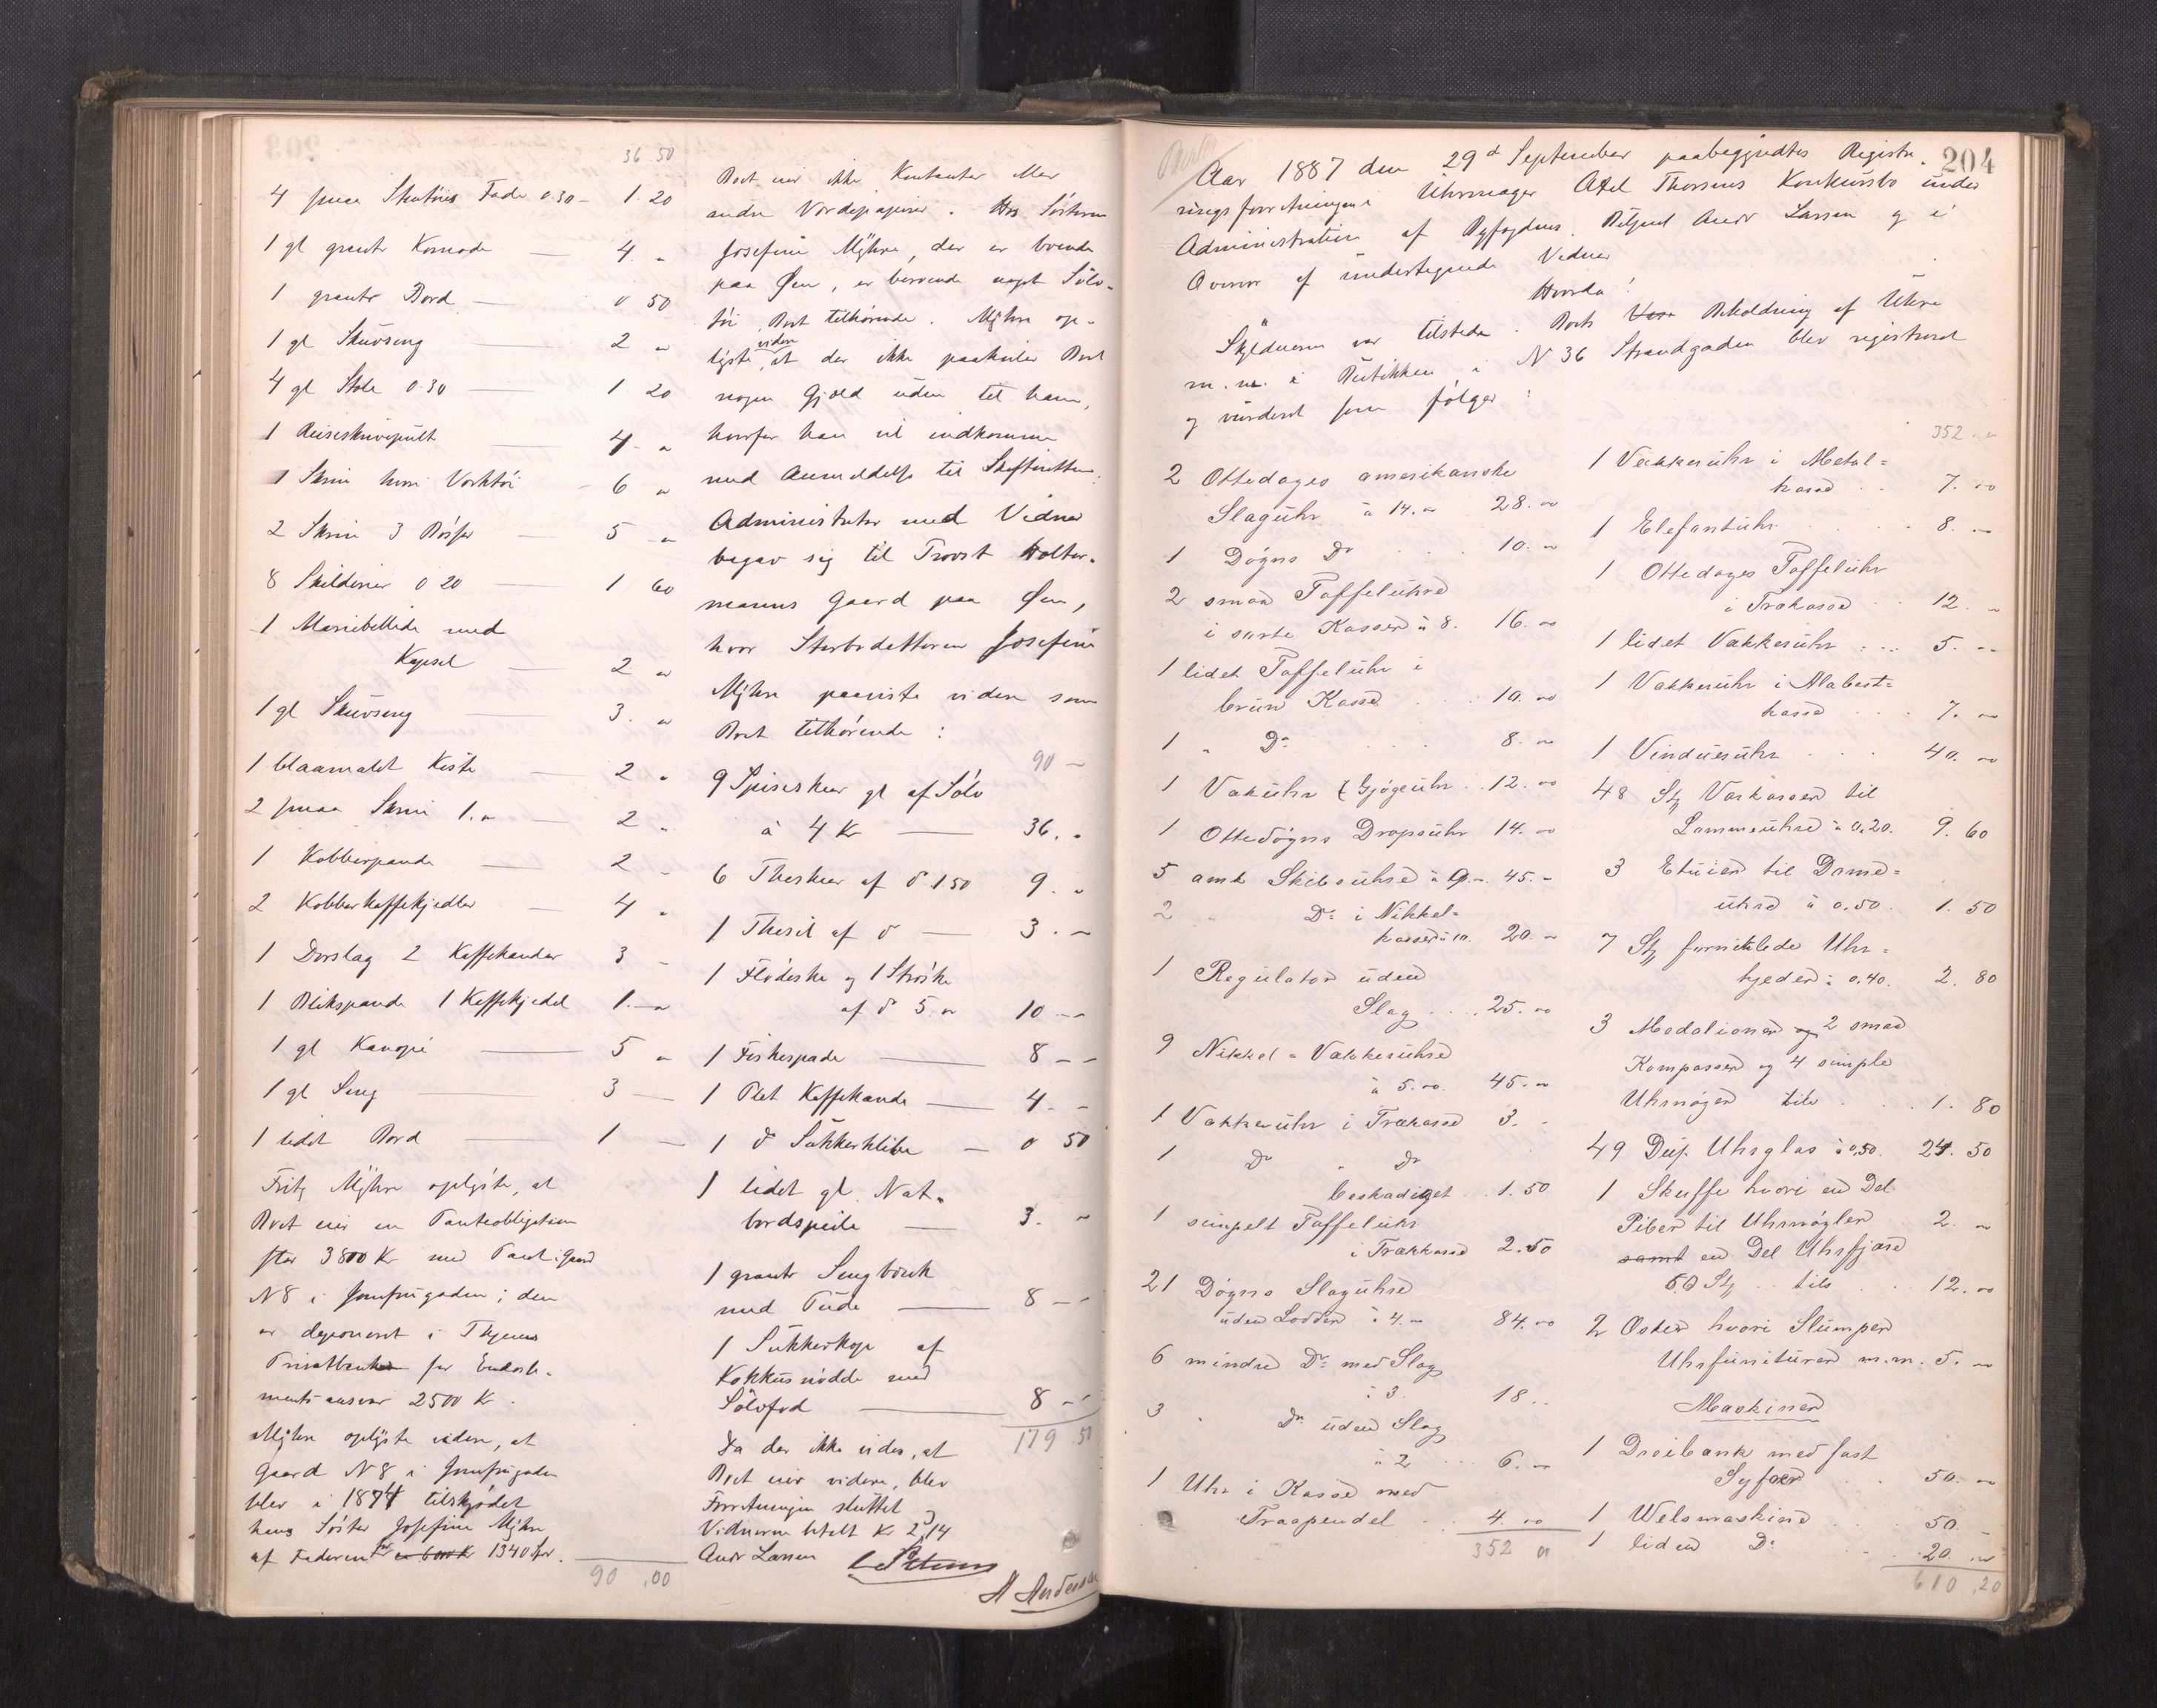 36 50
4 smaa Stentøis Fade 0.30 - 1. 20
1 gl grønt Komode — 4. "
1 grønt Bord — 0 50
1 gl Skuvseng — 2 "
4 gl Stole 0.30 — 1 20
1 Reiseskrivepult — 4. "
1 Skrin hvori Værktøi - 6 "
2 Skrin 3 Bøsser — 5 "
8 Skilderier 0 20 — 1 60
1 Mariebillede med
Kapsel — 2 "
1 gl Skuvseng — 3. "
1 blaamalet Kiste — 2 "
2 smaa Skrin 1. " — 2 "
1 Kobberpande — 2 -
2 Kobberkaffekjedler — 4 "
1 Dørslag 2 Kaffekander 3 -
1 Blikspande 1 Kaffekjedel 1. "
1 gl Kanopé — 5 "
1 gl Seng — 3 —
1 lidet Bord — 1 —
Fritz Mÿhre oplÿste, at
Boet eier en Panteobligation
stor 3800 Kr med Pant i Gaard
N 8 i Jomfrugaden; den
er deponeret i
Privatbank for Endosse-
mentsansvar 2500 K.
Mÿhre oplÿste videre, at
Gaard N 8 i Jomfrugaden
blev i 1874 tilskjødet
hans Søster Josefine Mÿhre
af Faderen for 1340 Spd.
90 .00
Boet eier ikke Kontanter eller
andre Værdipapirer. Hos Søsteren
Josefine Mÿhre, der er boende
paa Øen, er beroende noget Sølv-
tøi, Boet tilhørende. Mÿhre op-
lÿste videre, at der ikke paahviler Boet
nogen Gjæld uden til ham,
hvorfor han vil indkomme
med Anmeldelse til Skifteretten.
Administrator med Vidner
begav sig til Provst Holter-
manns Gaard paa Øen,
hvor Sterbodatteren Josefine
Mÿhre paaviste videre som
Boet tilhørende:
90 —
9 Spiseskeer gl af Sølv
à 4 Kr — 36. "
6 Theskeer af do 1 50 9. "
1 Thesil af do — 3. —
1 Flødeske og 1 Strøske
af do 5 " 10 — -
1 Fiskespade — 8 - -
1 Plet Kaffekande — 4. -
1 do Sukkerklibe — 0 50
1 lidet gl Nat-
bordspeile — 3. "
1 grønt Sengbænk
med Pude — 8 — -
1 Sukkerkop af
Kokkusnødde med
Sølvfod — 8 - -
179 50
Da der ikke vides, at
Boet eier videre, blev
Forretningen sluttet
Vidnerne betalt K 2,14
Andr Larsen
A Andersen
204
Aar 1887 den 29d September paabegyndtes Registre-
ringsforretningen i Uhrmager Axel Thorsens Konkursbo under
Administration af Byfogdens Betjent Andr Larsen og i
Overvær af undertegnede Vidner
Hvorda!
Skyldneren var tilstede. Boets Beholdning af Uhre
m. m. i Butikken i N 36 Strandgaden blev registreret
og vurderet som følger:
2 Ottedages amerikanske
Slaguhr à 14. " 28. "
1 Døgns Do . . . 10. "
2 smaa Taffeluhre
i sorte Kasser à 8. 16. "
1 lidet Taffeluhr i
brun Kasse . . . 10. "
1 " Do . . . 8. "
1 Vækuhr (Gjøgeuhr . 12. "
1 Ottedøgns Drapsuhr 14. "
5 amk Skibsuhre à 9. " 45. "
2 " Do i Nikkel-
kasser à 10. 20. "
1 Regulator uden
Slag . . . 25. "
9 Nikkel-Vækkeruhre
à 5. " 45. "
1 Vækkeruhr i Trækasse 3. -
1 Do " Do
beskadiget . 1. 50
1 simpelt Taffeluhr
i Trækkasse 2. 50
21 Døgns Slaguhre
uden Lodder à 4. " 84. "
6 mindre Do med Slag
à 3. 18 . .
3 " Do uden Slag
à 2 . . . 6. "
1 Uhr i Kasse med
Træpendel . . 4. "
352 "
352 "
1 Vækkeruhr i Metal-
kasse . . 7. "
1 Elefantuhr . . . 8. "
1 Ottedages Taffeluhr
i Trækasse . . 12. "
1 lidet Vækkeruhr . . . 5. "
1 Vækkeruhr i Alabast-
kasse . . . 7. "
1 Vinduesuhr . . . 40. "
48 Stz Værkasser til
Lommeuhre à 0.20. 9. 60
3 Etuier til Dame-
uhre à 0.50 . 1. 50
7 Stz fornikklede Uhr-
kjeder à 0.40. 2. 80
3 Medalioner og 2 smaa
Kompasser og 4 simple
Uhrnøger tils . . . 1. 80
49 Dus. Uhrglas à 0,50. 24. 50
1 Skuffe hvori en Del
Piber til Uhrnøgler 2. "
samt en Del Uhrfjære
50 Stz . . tils . . 12. "
2 Æsker hvori Slumper
Uhrfunituren m.m. 5. "
Maskiner
1 Dreibænk med fast
50. "
1 Welsmaskine . . . 50. -
1 liden Do . . 20. "
610,20